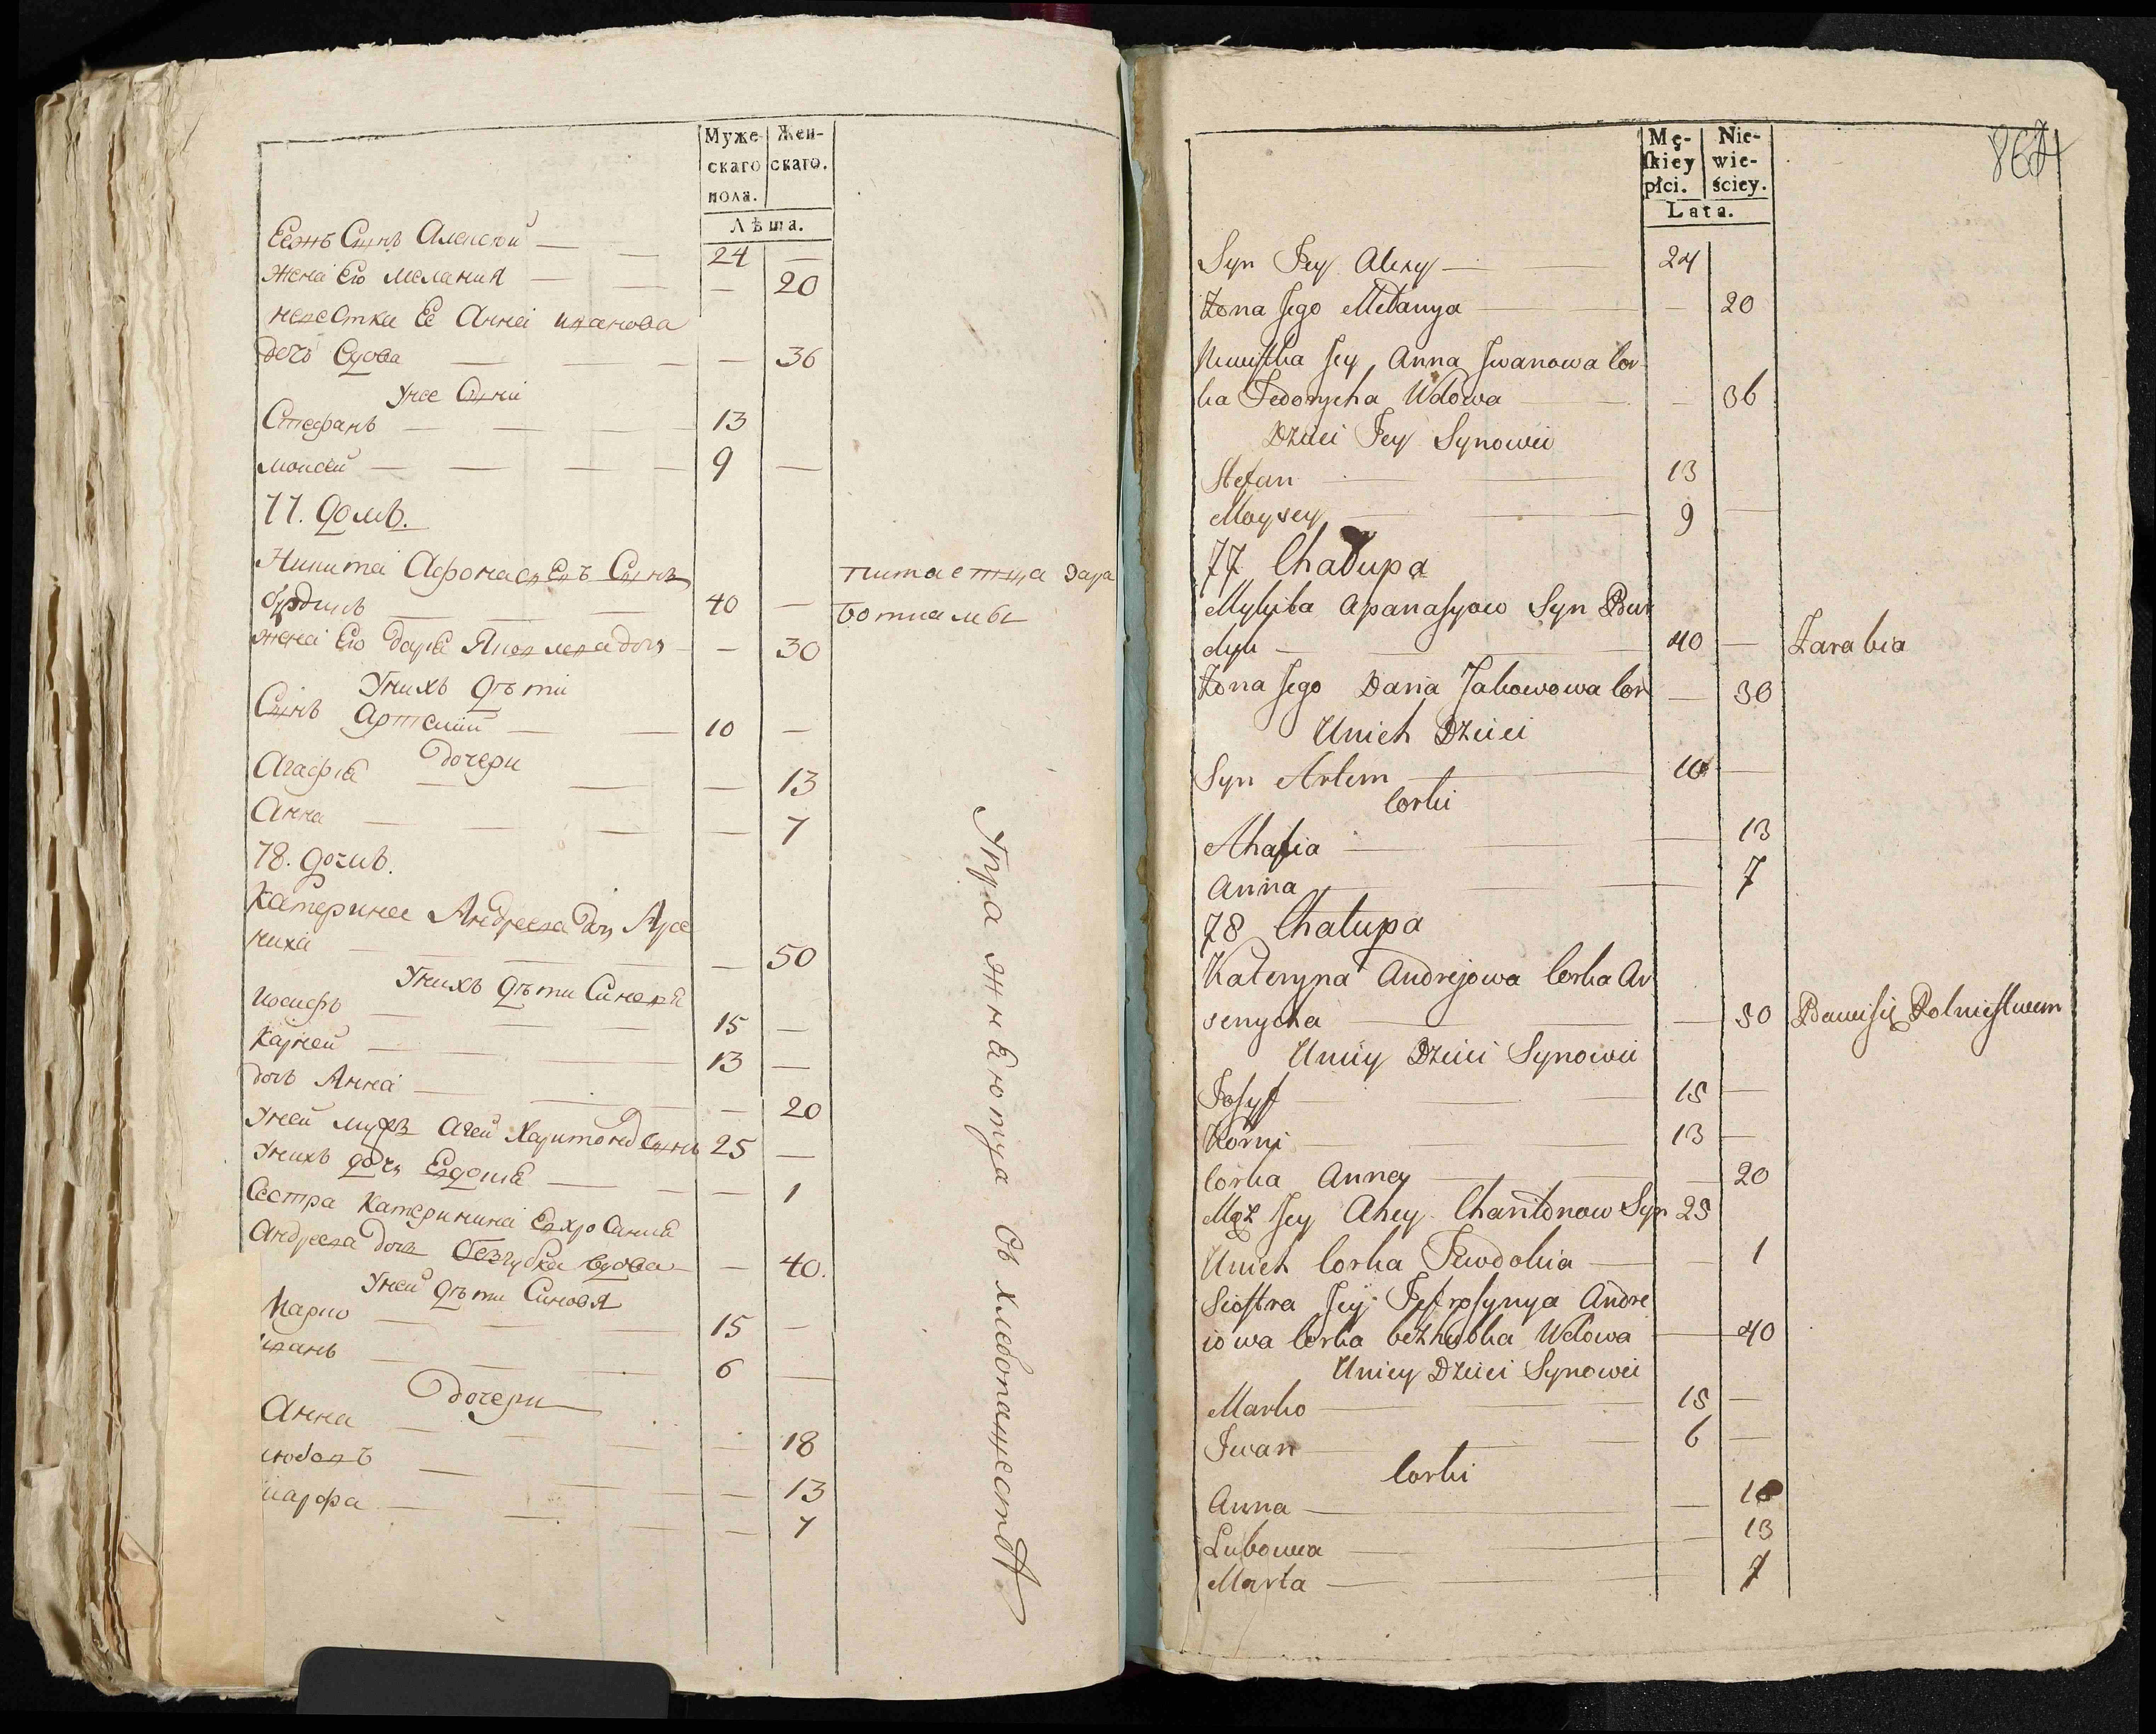 Муже-
скаго
пола.
Жен-
скаго.
Лѣта.
Ееянъ Сынъ Алексѣй — 24 —
жена Его Мелания — — 20
невестка Ее Анна иванова
дочь вдова — — 36
Унее Сыни
Стефанъ — 13
моисей — 9 —
77. домъ.
Никита Афонасиевъ Сынъ питается зара
бурдикъ — 40 — ботками
жена Его дарья Яковлева дочь — 30
Унихъ дѣти
Сынъ Артемий — 10 —
дочери
Агафия — — 13
Анна — — 7
78. домъ.
Катерина Андреева дочь Арсе
ниха — — 50
Унихъ дѣти Синовя
Иосифъ — 15 —
Карней — 13 —
дочь Анна — — 20
Уней мужъ Агей Харитоновъ Сынъ 25 —
Унихъ дочь Евдокия — — 1
Сестра Катеринина Евхросиния
Андреева дочь безгубка вдова — 40.
Уней дѣти Синовя
Марко — 15 —
иванъ — 6 —
дочери
Анна — 18
любовъ — — 13
марфа — — 7
съ хлебопашества
Mę-
skiey
płci.
Nie-
wie-
ściey.
Lata.
Syn Jey Alexy — 24
Żona Jego Melanya — — 20
Newistka Jey Anna Jwanowa Cor
ka Fedorycha Wdowa — — 36
Dzieci Jey Synowie
Stefan — 13
Moysey — 9 —
77 Chałupa
Mykita Apanasyow Syn Bur
dyk — 40 — Zarabia
Żona Jego Daria Jakowowa Cor — 30
Unich Dzieci
Syn Artem — 10 —
Corki
Ahafia — — 13
Anna — — 7
78 Chałupa
Kateryna Andrejowa Corka Ar
senycha — — 50 Bawi się Rolnictwem
Uniey Dzieci Synowie
Josyf — 15 —
Korni — 13 —
Corka Anna — — 20
Mąż Jey Ahey Charitonow Syn 25
Unich Corka Jewdokia — — 1
Siostra Jey Jefrosynya Andre
iowa Corka bezhubka Wdowa — 40
Uniey Dzieci Synowie
Marko — 15 —
Jwan — 6 —
Corki
Anna — — 18
Lubowa — — 13
Marta — 7